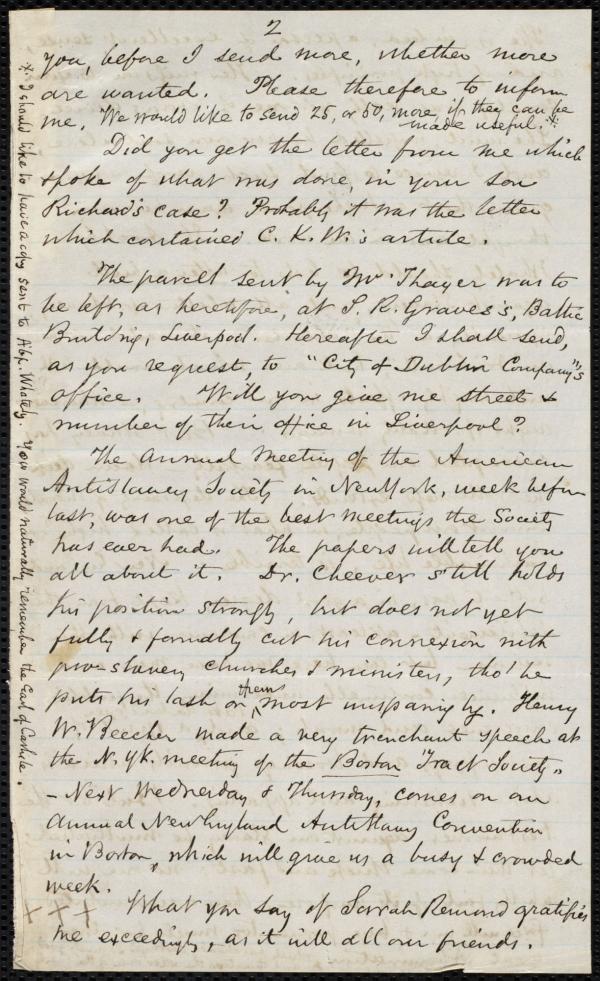 2
you, before I send more, whether more
are wanted. Please therefore to inform
me. We would like to send 25, or 50, more, if they can be
made useful.*
Did you get the letter from me which
spoke of what was done, in your son
Richard's case? Probably it was the letter
which contained C. K. W.'s article.
The parcel sent by Mr. Thayer was to
be left, as heretofore, at S. R. Graves's, Baltic
Building, Liverpool. Hereafter I shall send,
as you request, to "City of Dublin Company"'s
office. Will you give me street &
number of their office in Liverpool?
The Annual Meeting of the American
Antislavery Society in New York, week before
last, was one of the best meetings the Society
has ever had. The papers will tell you
all about it. Dr. Cheever still holds
his position strongly, but does not yet
fully & formally cut his connexion with
pro-slavery churches & ministers, tho' he
puts his lash on them most unsparingly. Henry
W. Beecher made a very trenchant speech at
the N. Yk. meeting of the Boston Tract Society.
- Next Wednesday & Thursday, comes on our
Annual New England AntiSlavery Convention
in Boston, which will give us a busy & crowded
week.
+++ What you say of Sarah Remond gratifies
me exceedingly, as it will all our friends.
* I should like to have a copy sent to Abp. Whately. You would naturally remember the Earl of Carlisle.